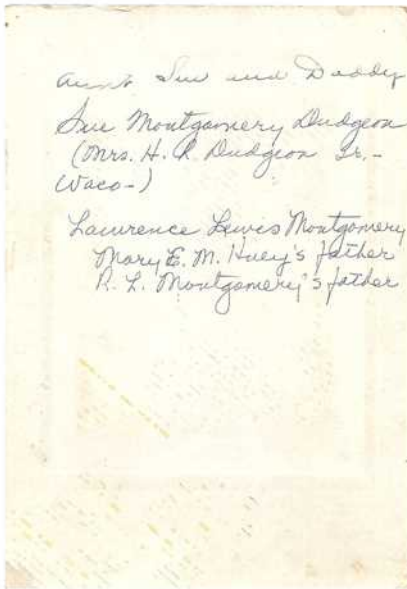 Aunt Sue and Daddy
Sue Montgomery Dudgeon
(Mrs. H. R. Dudgeon Sr. -
Waco -)
Lawrence Lewis Montgomery
Mary E. M. Huey's father
R. L. Montgomery's father